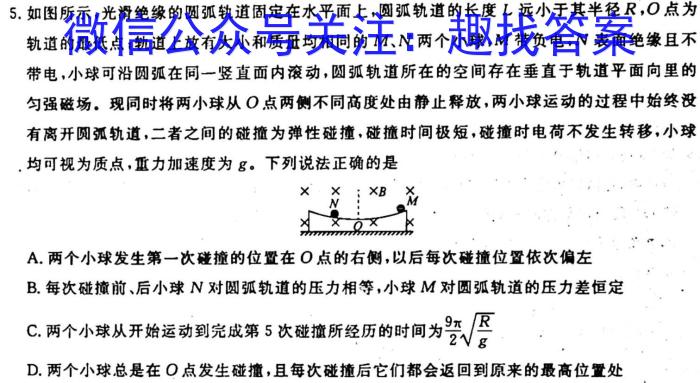 5. 如图所示,光滑绝缘的圆弧轨道固定在水平面上,圆弧轨道的长度 L 远小于其半径 R,O 点为
轨道的最低点,轨道上放有大小和质量均相同的 M、N 两个小球,M 带负电,N 表面绝缘且不
微信公众号关注:趣找答案
带电,小球可沿圆弧在同一竖直面内滚动,圆弧轨道所在的空间存在垂直于轨道平面向里的
匀强磁场。现同时将两小球从 O 点两侧不同高度处由静止释放,两小球运动的过程中始终没
有离开圆弧轨道,二者之间的碰撞为弹性碰撞,碰撞时间极短,碰撞时电荷不发生转移,小球
均可视为质点,重力加速度为 g。下列说法正确的是
× × ×B ×
N M
× × O × ×
A. 两个小球发生第一次碰撞的位置在 O 点的右侧,以后每次碰撞位置依次偏左
B. 每次碰撞前、后小球 N 对圆弧轨道的压力相等,小球 M 对圆弧轨道的压力差恒定
C. 两个小球从开始运动到完成第 5 次碰撞所经历的时间为 9π/2 √(R/g)
D. 两个小球总是在 O 点发生碰撞,且每次碰撞后它们都会返回到原来的最高位置处